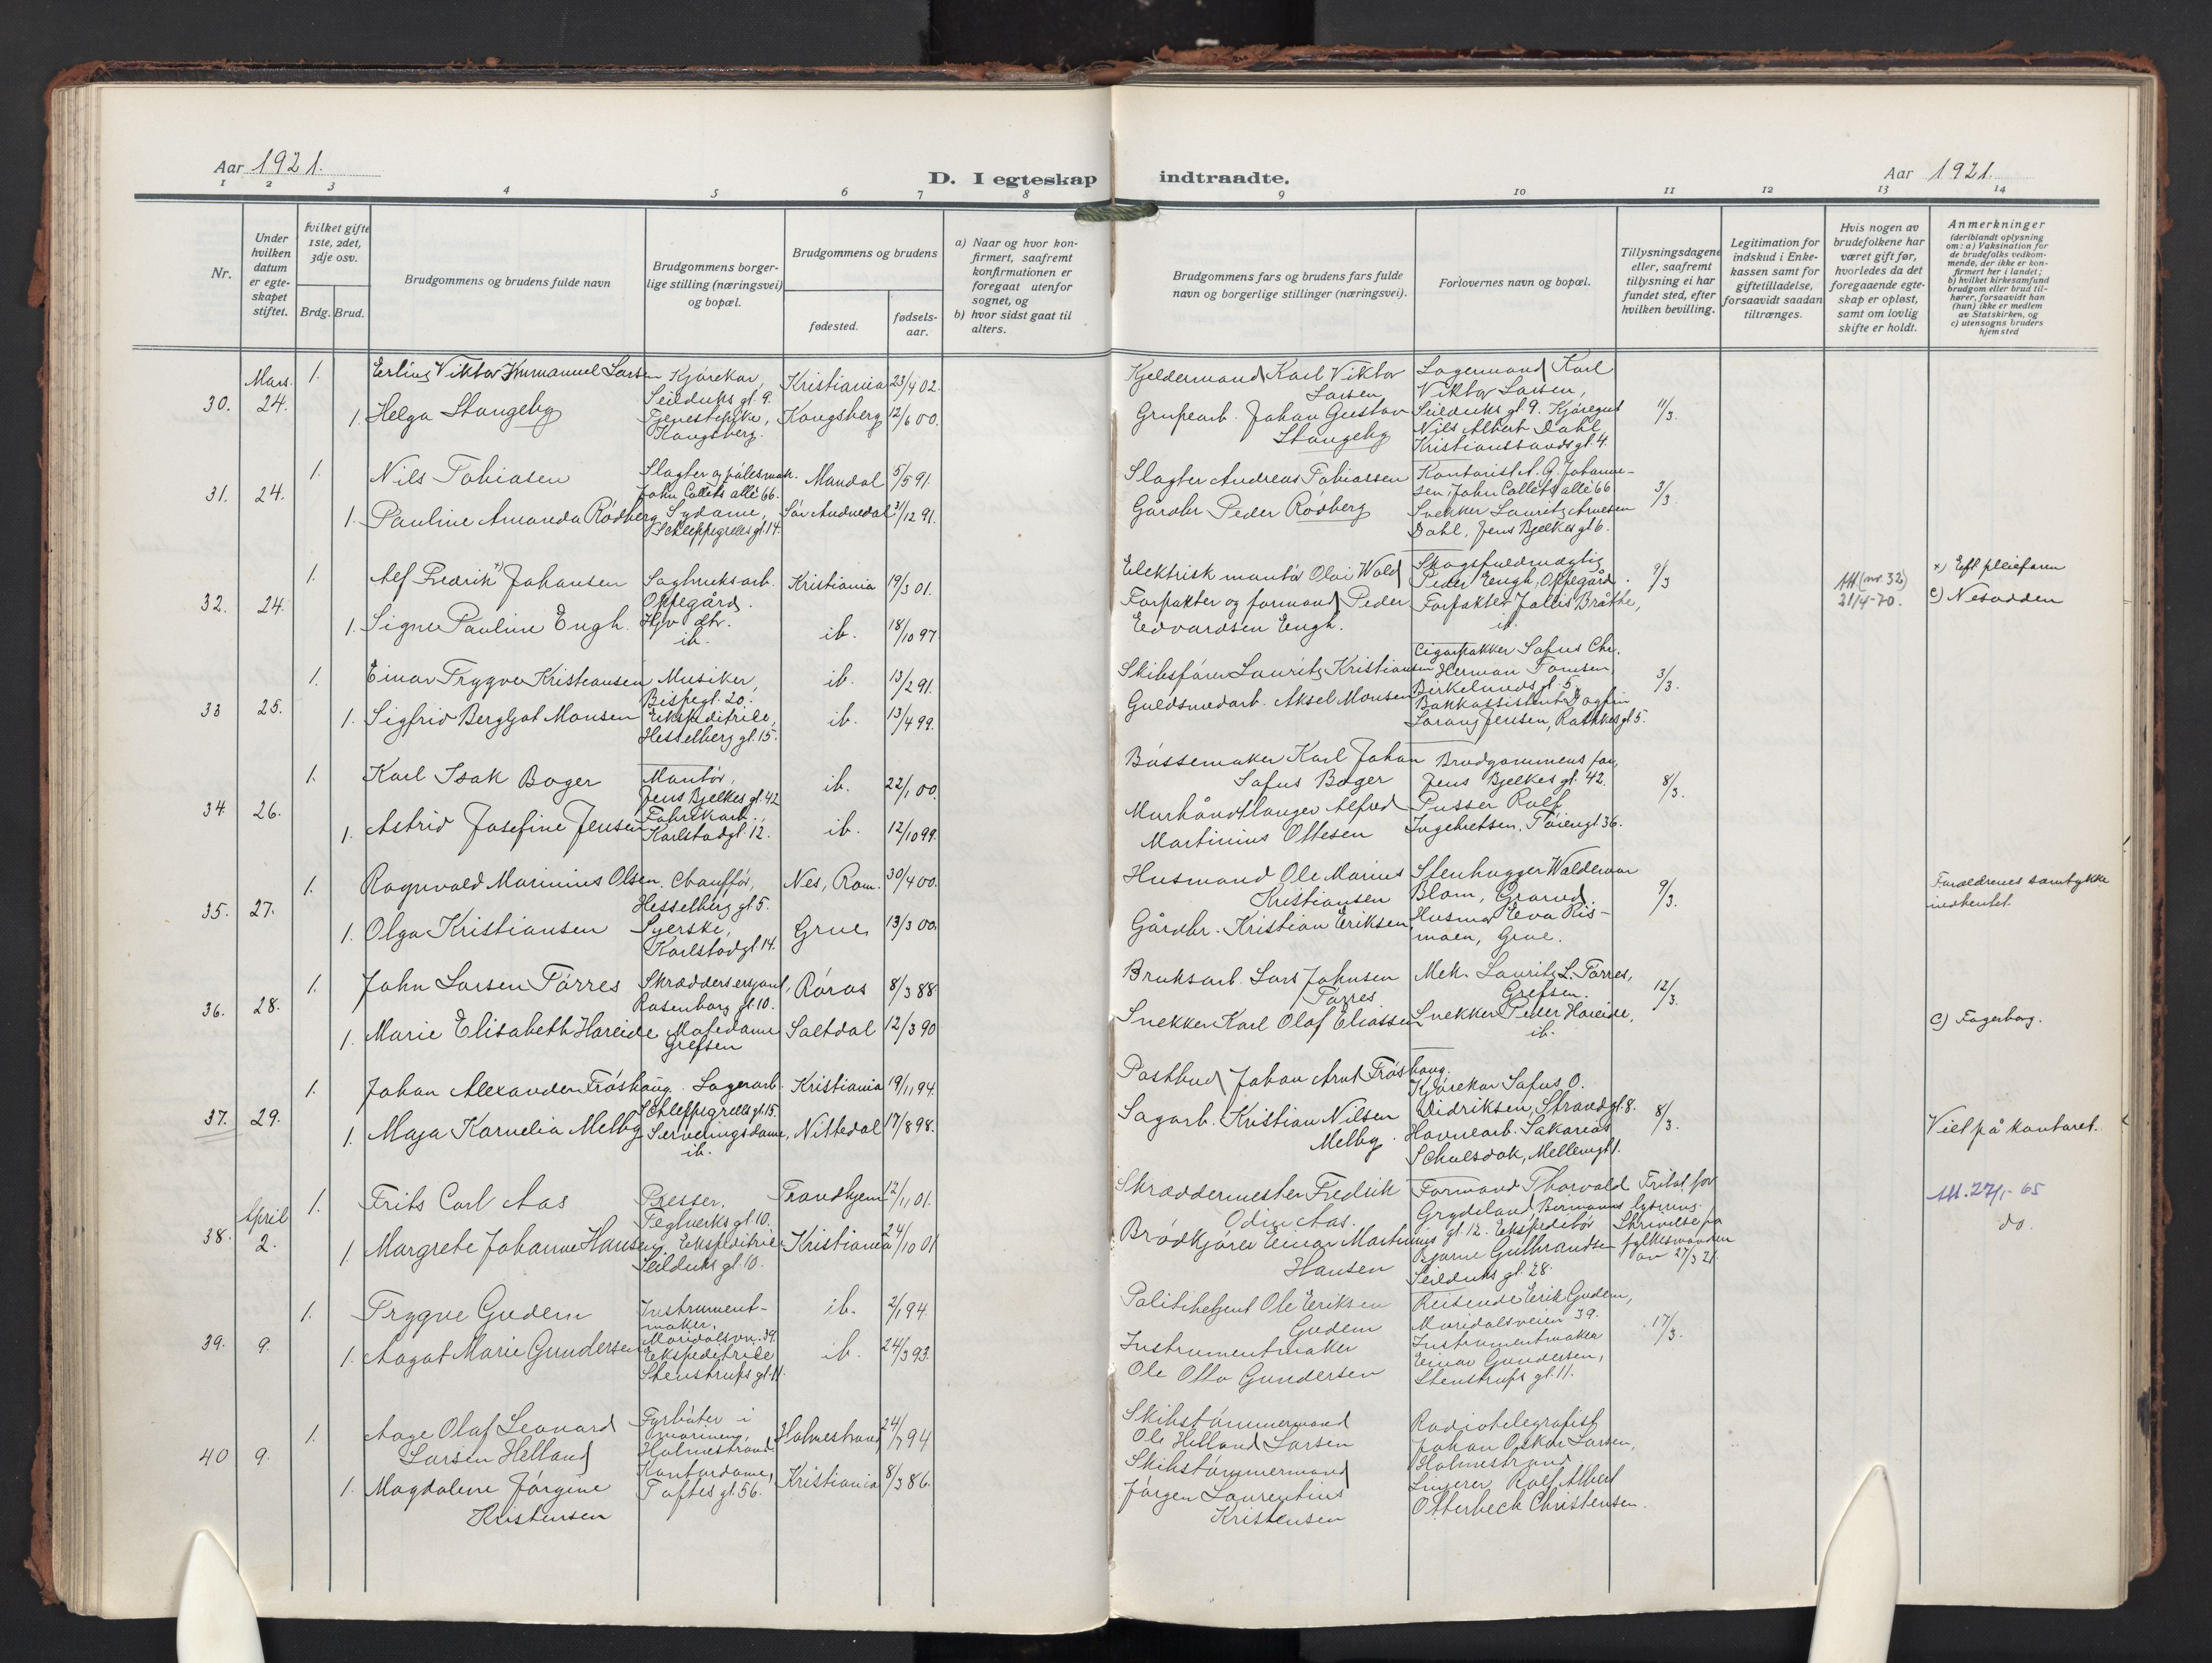 Aar 1921.
D. I egteskap indtraadte.
Aar 1921.
1 2 3 4 5 6 7 8 9 10 11 12 13 14
Nr.
Under hvilken datum er egteskapet stiftet.
hvilket gifte 1ste, 2det, 3dje osv.
Brdg. Brud.
Brudgommens og brudens fulde navn
Brudgommens borgerlige stilling (næringsvei) og bopæl.
Brudgommens og brudens
fødested.
fødselsaar.
a) Naar og hvor konfirmert, saafremt konfirmationen er foregaat utenfor sognet, og
b) hvor sidst gaat til alters.
Brudgommens fars og brudens fars fulde navn og borgerlige stillinger (næringsvei).
Forlovernes navn og bopæl.
Tillysningsdagene eller, saafremt tillysning ei har fundet sted, efter hvilken bevilling.
Legitimation for indskud i Enkekassen samt for giftetilladelse, forsaavidt saadan tiltrænges.
Hvis nogen av brudefolkene har været gift før, hvorledes da det foregaaende egteskap er opløst, samt om lovlig skifte er holdt.
Anmerkninger
(deriblandt oplysning om: a) Vaksination for de brudefolks vedkommende, der ikke er konfirmert her i landet;
b) hvilket kirkesamfund brudgom eller brud tilhører, forsaavidt han (hun) ikke er medlem av Statskirken, og
c) utensogns bruders hjemsted
30. Mars. 24.
1. Erling Viktor Immanuel Larsen Kjørekar, Seilduks gt. 9. Kristiania 23/4 02.
Kjeldermand Karl Viktor Larsen
Lagermand Karl Viktor Larsen, Seilduks gt. 9. Kjøregut Nils Albert Dahl, Kristianssands gt. 4.
11/3.
1. Helga Stangeby Tjenestepike, Kongsberg. Kongsberg 12/6 00.
Grubearb. Johan Gustav Stangeby
31. 24.
1. Nils Tobiasen Slagter og pølsemak. John Collets allé 66. Mandal 5/5 91.
Slagter Andreas Tobiassen
Kontorist A. G. Johannesen, John Collets allé 66. Snekker Lauritz Arnesen Dahl, Jens Bjelkes gt 6.
3/3.
1. Pauline Amanda Rødberg Sydame, Schleppegrells gt. 14. Sør Audnedal 21/12 91.
Gårdbr Peder Rødberg
32. 24.
1. Alf Fredrik x) Johansen Sagbruksarb. Oppegård. Kristiania 19/3 01.
Elektrisk montør Olai Wold
Skogsfuldmægtig Peder Engh, Oppegård. Forpakter Jallis Bråthe, ib.
9/3
Att (nr. 32) 21/4-70.
x) Eft pleiefaren
c) Nesodden
1. Signe Pauline Engh. Hjv dtr. ib. ib. 18/10 97
Forpakter og formand Peder Edvardsen Engh.
33 25.
1. Einar Trygve Kristiansen Musiker, Bispegt. 20. ib. 13/2 91.
Skibsfører Lauritz Kristiansen
Cigarpakker Sofus Chr. Herman Tomsen, Birkelunds gt. 5. Bankassistent Dagfin Lorang Jensen, Rathkes gt 5.
3/3.
1. Sigfrid Bergljot Monsen Ekspeditrise, Hesselberg gt. 15. ib. 13/4 99.
Guldsmedarb. Aksel Monsen
34 26.
1. Karl Isak Boger Montør, Jens Bjelkes gt. 42 ib. 22/1 00.
Bøssemaker Karl Johan Sofus Boger
Brudgommens far, Jens Bjelkes gt. 42. Pusser Rolf Ingebretsen, Tøiengt 36.
8/3.
1. Astrid Josefine Jensen Fabrikarb. Karlstadgt. 12. ib. 12/10 99.
Murhåndtlanger Alfred Martinius Ottesen
35. 27.
1. Ragnvald Marinius Olsen. Chauffør, Hesselberg gt. 5. Nes, Rom. 30/4 00.
Husmand Ole Marius Kristiansen
Stenhugger Waldemar Blom, Grorud. Husmor Eva Rismoen, Grue.
9/3.
Forældrenes samtykke indhentet.
1. Olga Kristiansen Syerske, Karlstadgt. 14. Grue 13/3 00.
Gårdbr. Kristian Eriksen
36. 28.
1. John Larsen Tørres Skræddersersjant, Rosenborg gt. 10. Røros 8/3 88
Bruksarb. Lars Johnsen Tørres
Mek. Lauritz L. Tørres, Grefsen. Snekker Peder Hareide, ib.
12/3.
c) Fagerborg.
1. Marie Elisabeth Hareide Motedame Grefsen Saltdal 12/3 90
Snekker Karl Olaf Eliassen
37. 29.
1. Johan Alexander Frøshaug. Lagerarb. Schleppegrells gt 15. Kristiania 19/11 94.
Postbud Johan Arnt Frøshaug.
Kjørekar Sofus O. Didriksen, Strandgt. 8. Havnearb. Sakarias Schulsdok, Mellemgt 1.
8/3.
Viet på kontoret.
1. Maja Kornelia Melby Serveringsdame, ib. Nittedal 17/8 98.
Sagarb. Kristian Nilsen Melby.
38. April 2.
1. Frits Carl Aas Presser, Teglverks gt 10. Trondhjem 12/1 01.
Skræddermester Fredrik Odin Aas.
Formand Thorvald Grydeland, Bermanns gt. 12. Ekspeditør Bjarne Gulbrandsen Seilduks gt. 28.
Fritat for lysning. Skrivelse fra fylkesmanden av 27/3 21.
Att. 27/1-65
do.
1. Margrete Johanne Hansen. Ekspeditrise Seilduks gt. 10. Kristiania 24/10 01
Brødkjører Einar Martinius Hansen
39. 9.
1. Trygve Gudem Instrumentmaker. Maridalsvn. 39. ib. 2/1 94.
Politibetjent Ole Eriksen Gudem
Reisende Erik Gudem, Maridalsveien 39. Instrumentmaker Einar Gundersen, Stenstrups gt. 11.
17/3.
1. Aagot Marie Gundersen Ekspeditrise Stenstrups gt. 11. ib. 24/3 93.
Instrumentmaker Ole Otto Gundersen
40 9.
1. Aage Olaf Leonard Larsen Helland Fyrbøter i marinen, Holmestrand. Holmestrand 24/7 94
Skibstømmermand Ole Helland Larsen
Radiotelegrafist Johan Oskar Larsen, Holmestrand Rolf Albert Otterbeck Christensen.
1. Magdalene Jørgine Kristensen Kontordame, Toftes gt. 56. Kristiania 8/3 86.
Skibstømmermand Jørgen Laurentius Kristensen